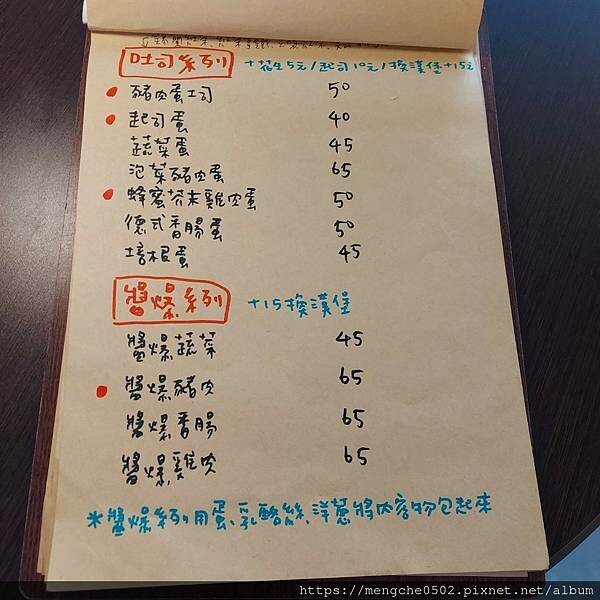 吐司系列 +花生5元/起司10元/換漢堡+15元
豬肉蛋土司 50
起司蛋 40
蔬菜蛋 45
泡菜豬肉蛋 65
蜂蜜芥末雞肉蛋 50
德式香腸蛋 50
培根蛋 45
醬爆系列 +15換漢堡
醬爆蔬菜 45
醬爆豬肉 65
醬爆香腸 65
醬爆雞肉 65
*醬爆系列用蛋、乳酪絲、洋蔥將內容物包起來
https://mengche0502.pixnet.net/album